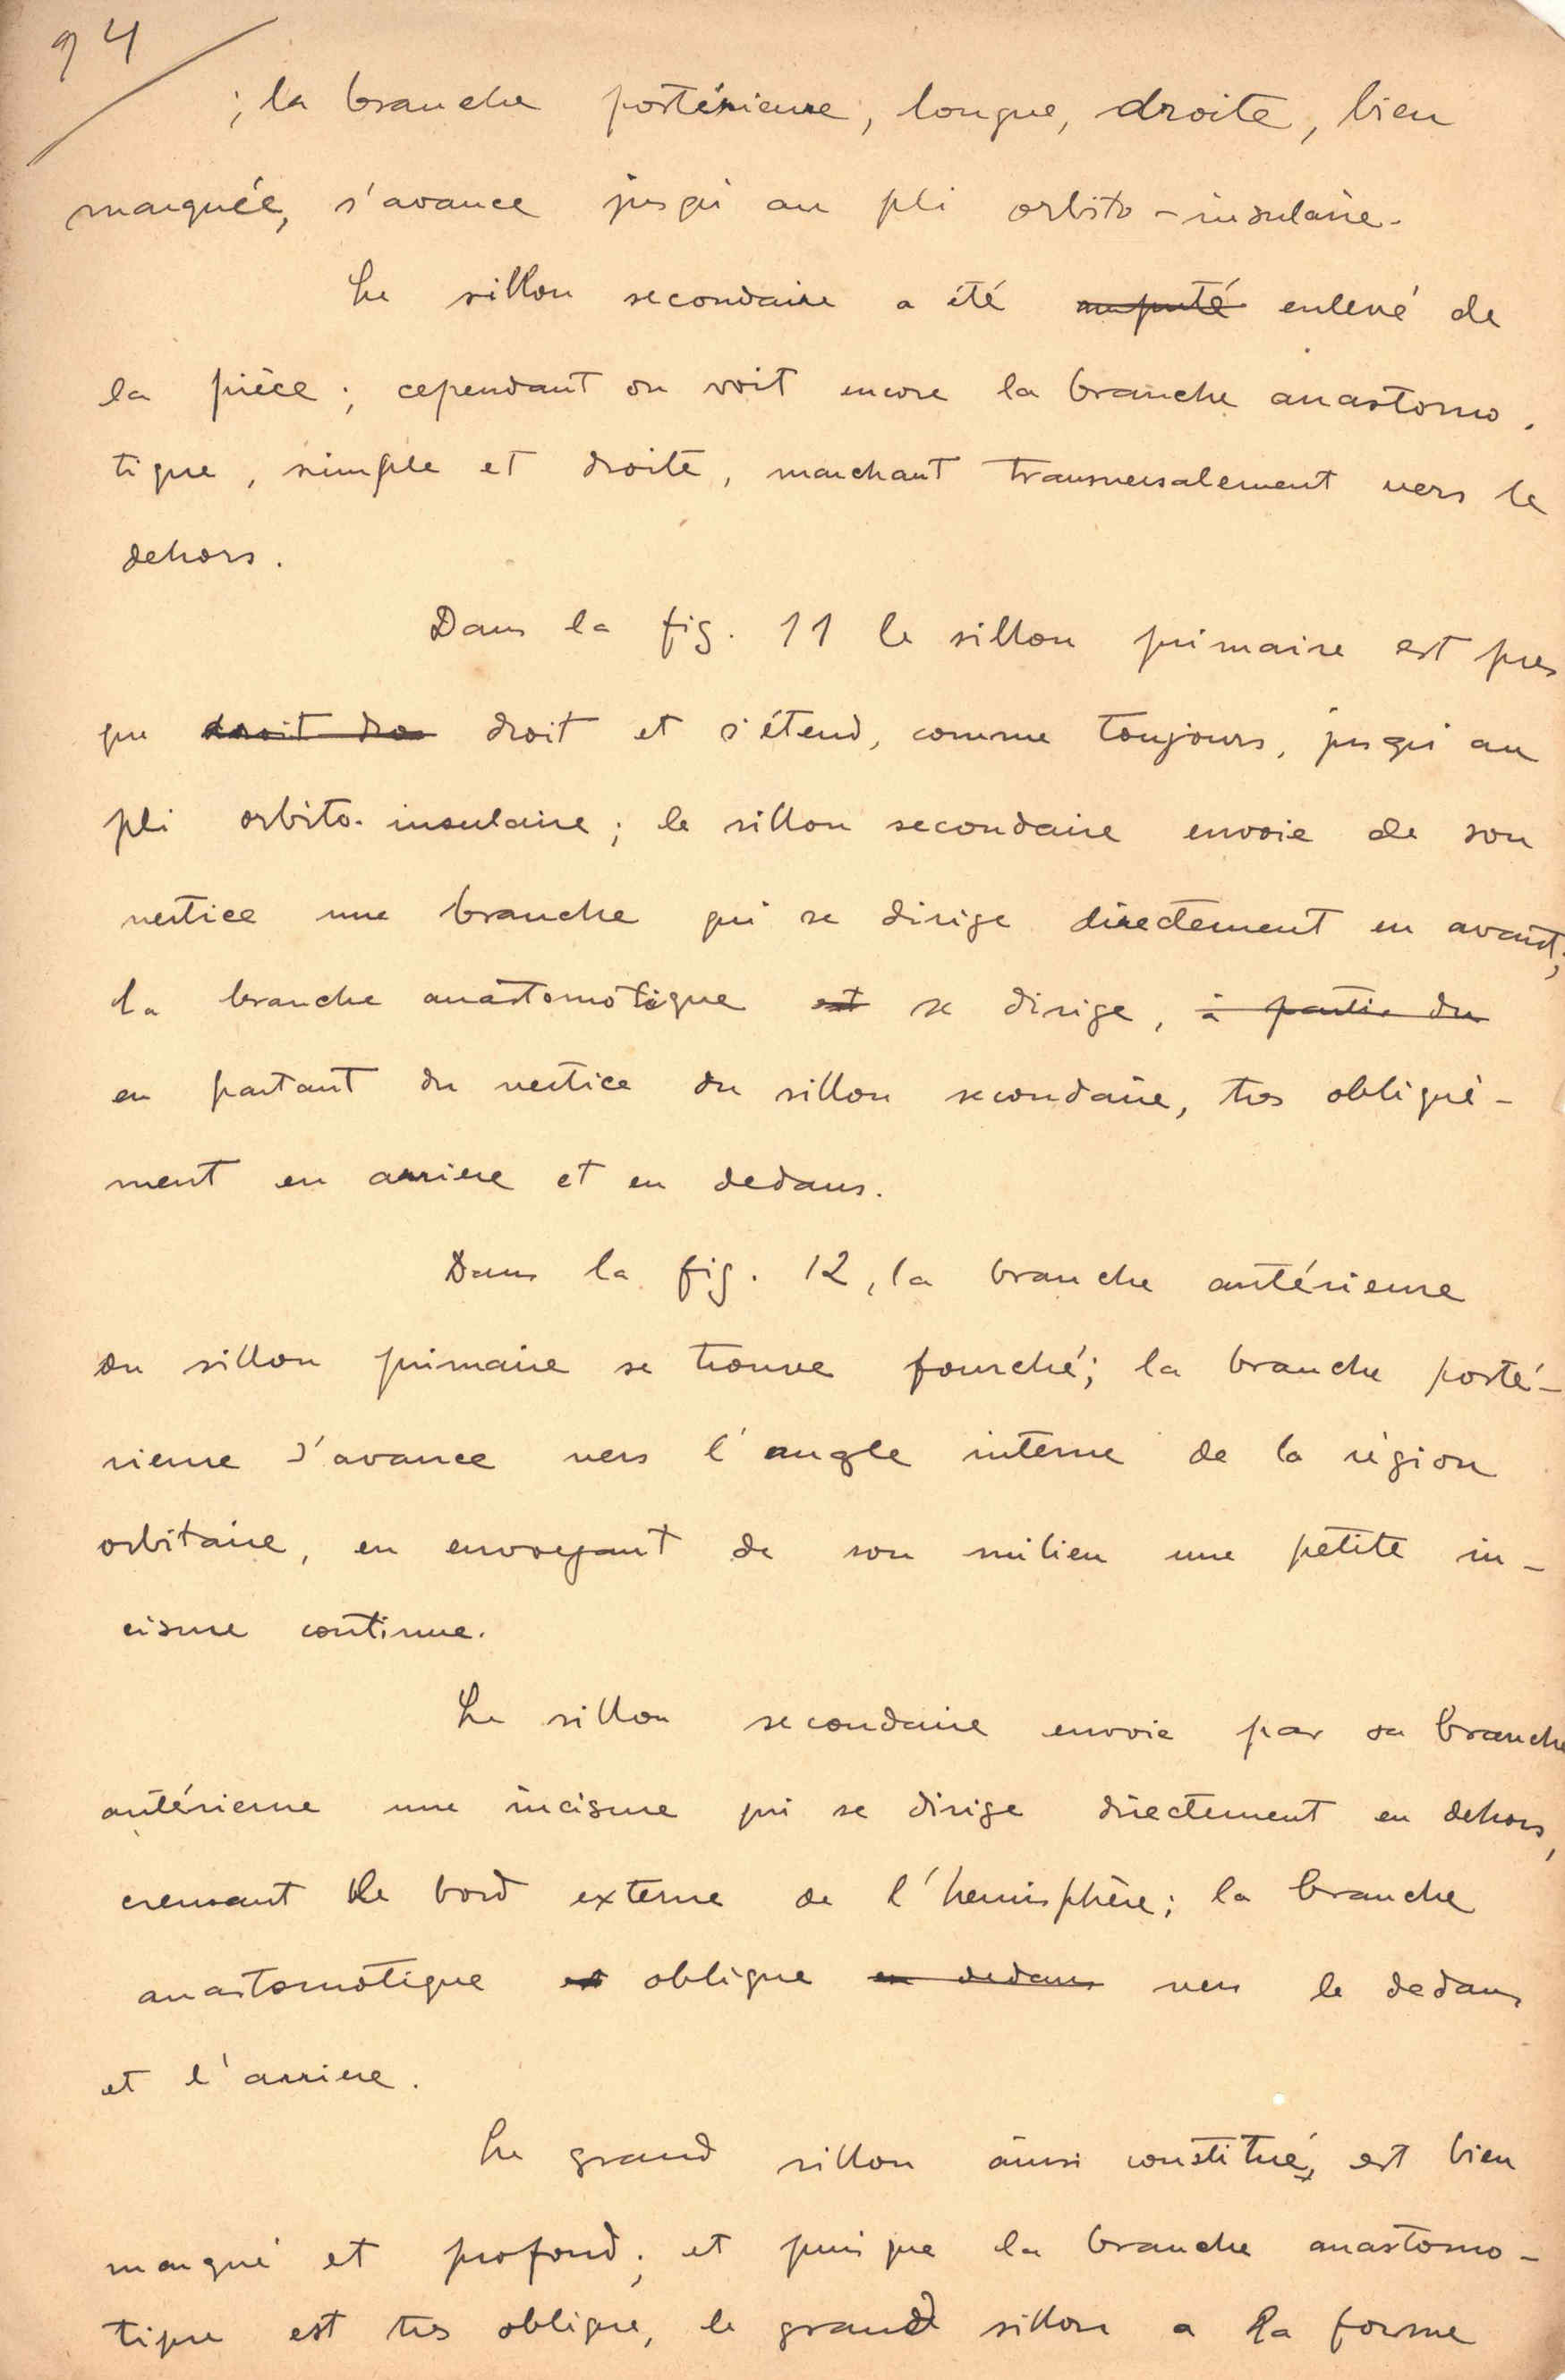 94
; la branche postérieure, longue, droite, bien
marquée, s'avance jusqu'au pli orbito-insulaire.
Le sillon secondaire a été amputé enlevé de
la pièce ; cependant on voit encore la branche anastomo-
tique, simple et droite, marchant transversalement vers le
dehors.
Dans la fig. 11 le sillon primaire est pres
que droit dro droit et s'étend, comme toujours, jusqu'au
pli orbito-insulaire ; le sillon secondaire envoie de son
vertice une branche qui se dirige directement en avant;
la branche anastomotique est se dirige, à partir du
en partant du vertice du sillon secondaire, tres obliqué-
ment en arriere et en dedans.
Dans la fig. 12, la branche antérieure
du sillon primaire se trouve fourché; la branche posté-
rieure s'avance vers l'angle interne de la région
orbitaire, en envoyant de son milieu une petite in-
cisure continue.
Le sillon secondaire envoie par sa branche
antérieure une incisure qui se dirige directement en dehors,
creusant le bord externe de l'hemisphère; la branche
anastomotique est oblique en dedans vers le dedans
et l'arriere.
Le grand sillon ainsi constitué, est bien
marqué et profond; et puisque la branche anastomo-
tique est tres oblique, le grand sillon a la forme